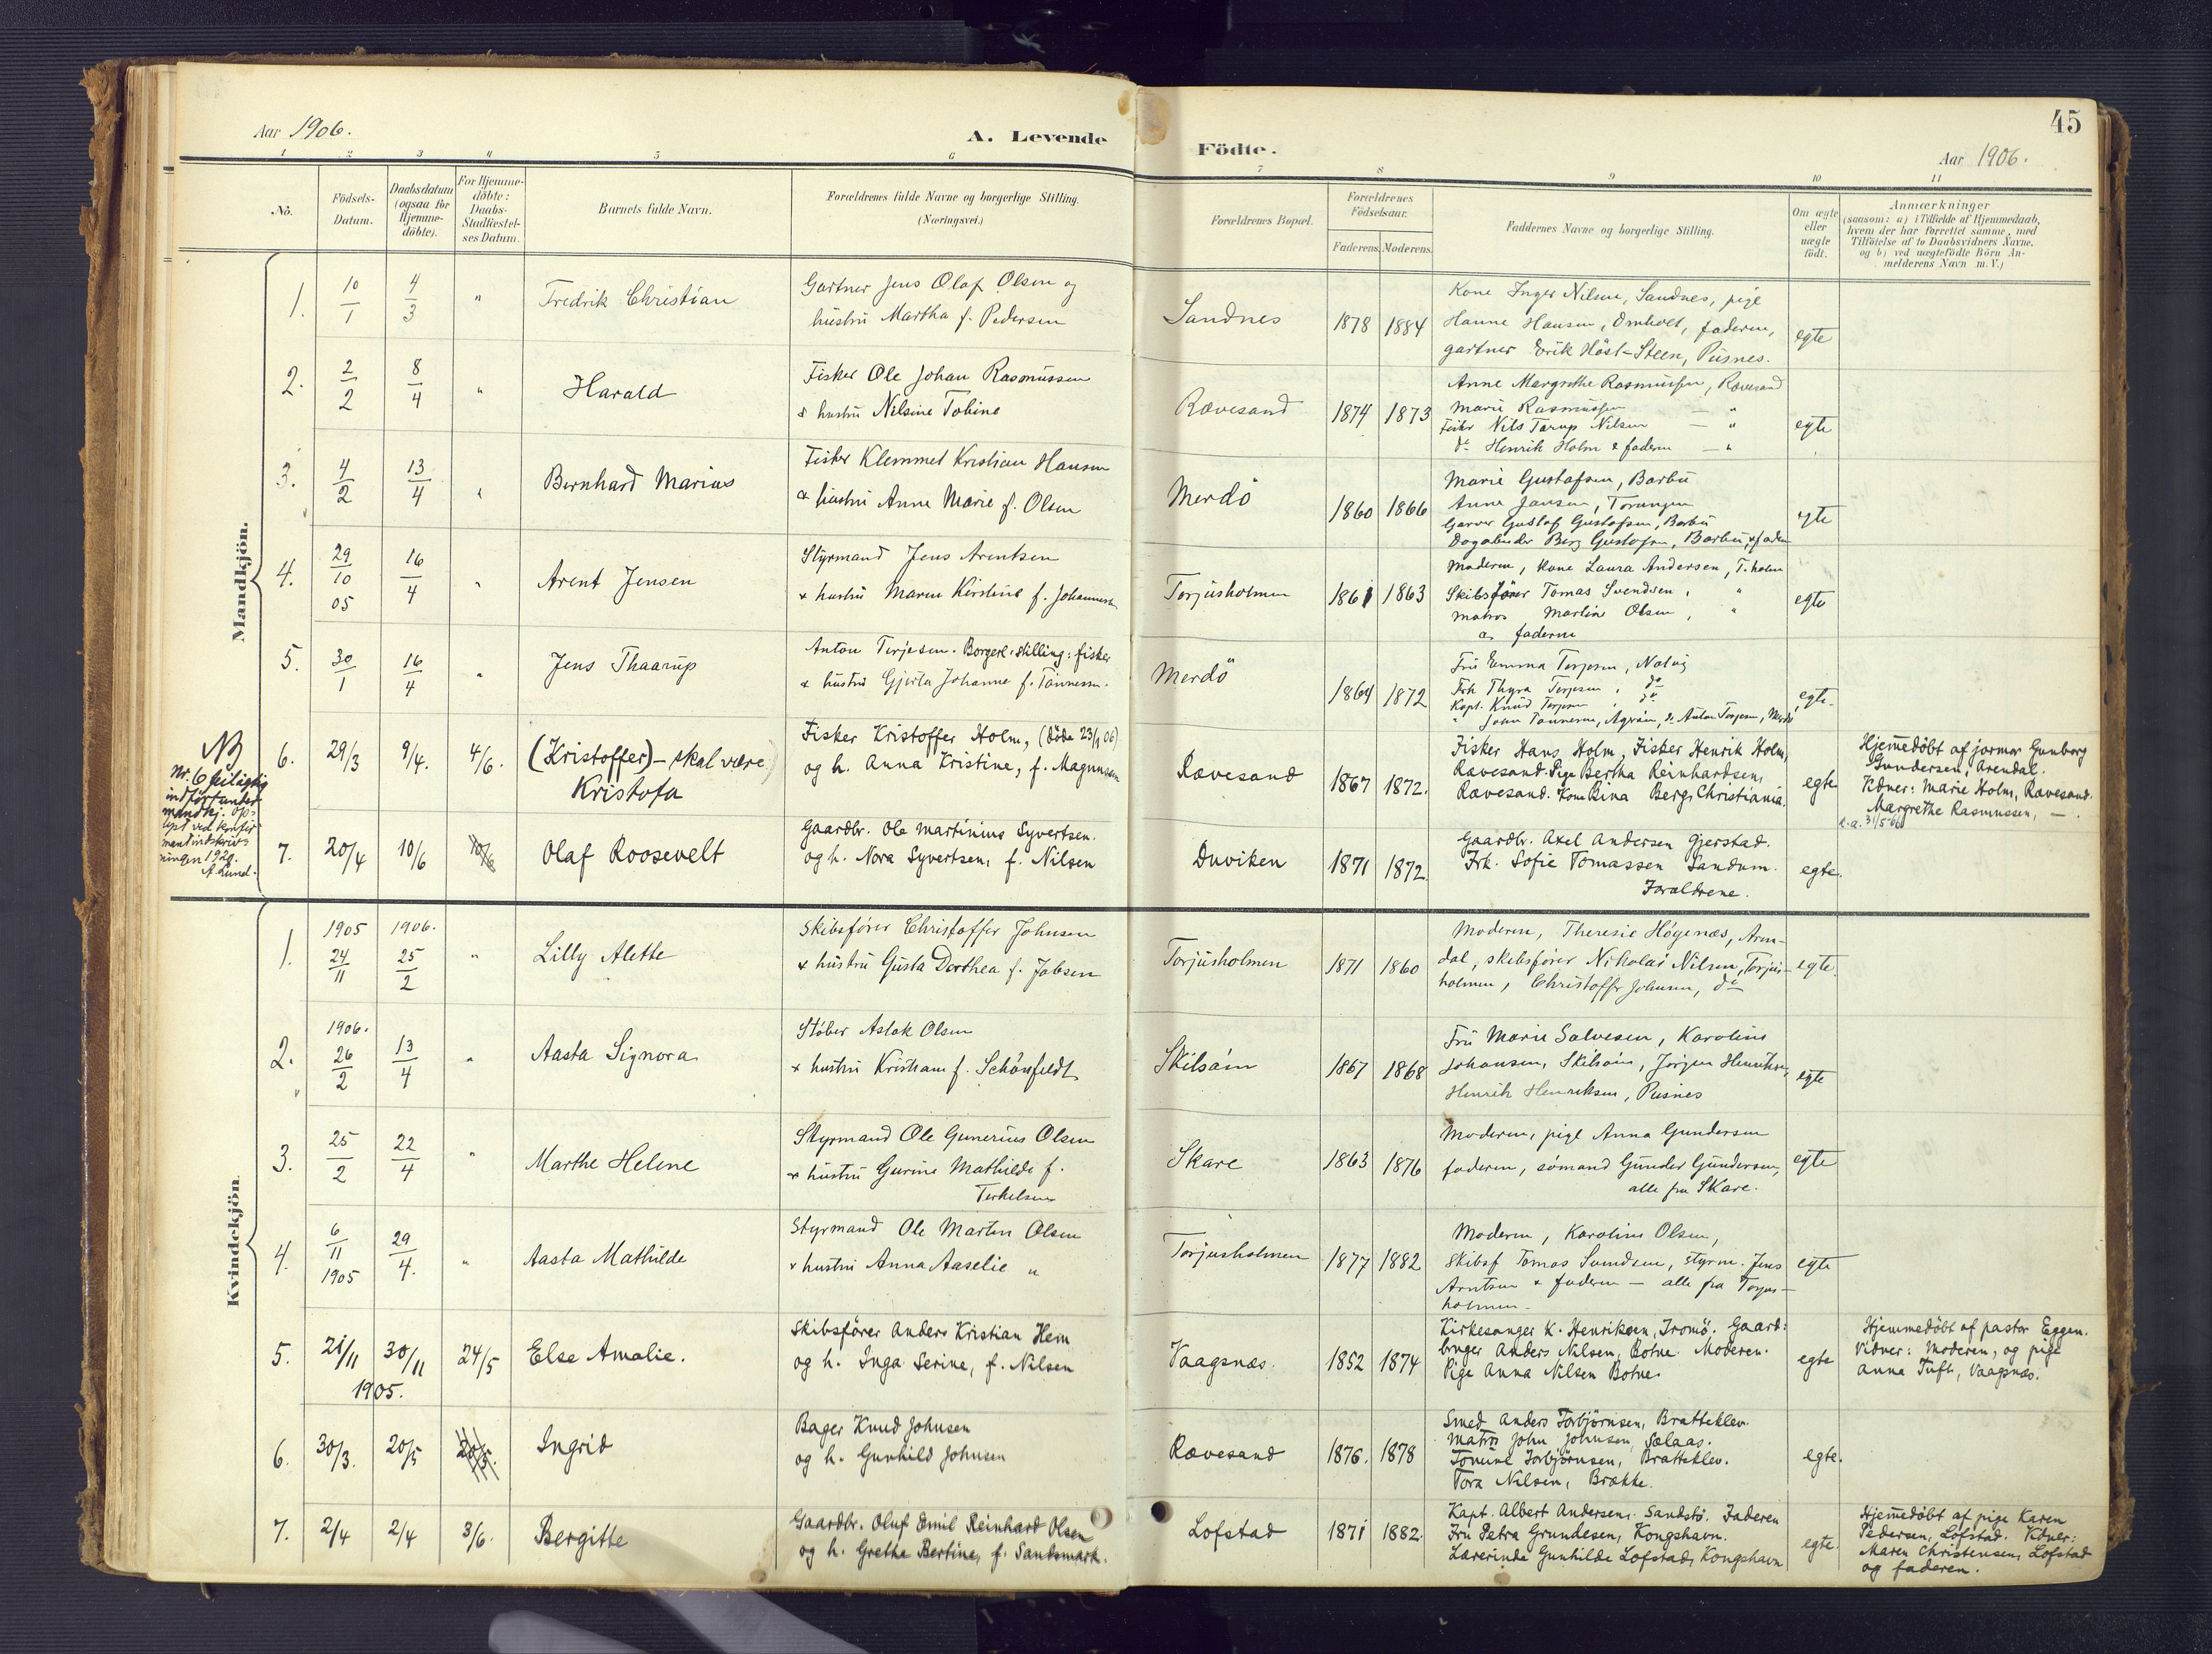 45
Aar 1906.
A. Levende Födte.
Aar 1906.
1 2 3 4 5 6 7 8 9 10 11
No.
Födsels-
Datum.
Daabsdatum
(ogsaa for
Hjemme-
döbte).
For Hjemme-
döbte:
Daabs-
Stadfæstel-
ses Datum.
Barnets fulde Navn.
Forældrenes fulde Navne og borgerlige Stilling.
(Næringsvei.)
Forældrenes Bopæl.
Forældrenes
Födselsaar.
Faderens. Moderens.
Faddernes Navne og borgerlige Stilling.
Om ægte
eller
uægte
födt.
Anmærkninger
(saasom: a) i Tilfælde af Hjemmedaab,
hvem der har forrettet samme, med
Tilföielse af to Daabsvidners Navne.
og b) ved uægtefödte Börn An-
melderens Navn m. V.)
Mandkjön.
1. 10/1 4/3 " Fredrik Christian
Gartner Jens Olaf Olsen og
hustru Martha f. Pedersen
Sandnes 1878 1884
Kone Inger Nilsen, Sandnes, pige
Hanne Hansen, Omholt, faderen,
gartner Erik Höst-Steen, Pusnes.
egte
2. 2/2 8/4 " Harald
Fisker Ole Johan Rasmussen
& hustru Nilsine Tobine
Rævesand 1874 1873
Anne Margrethe Rasmussen, Rævesand
Marie Rasmussen — "
Fisker Nils Tarup Nilsen — "
do Henrik Holm & faderen — "
egte
3. 4/2 13/4 " Bernhard Marius
Fisker Klemmet Kristian Hansen
& hustru Anne Marie f. Olsen
Merdö 1860 1866
Marie Gustafsen, Barbu
Anne Jansen, Torungen
Garver Gustaf Gustafsen, Barbu
Berg Gustafsen, Barbu, & fader
egte
4. 29/10 05 16/4 " Arent Jensen
Styrmand Jens Arentsen
& hustru Maren Kirstine f. Johannesen
Torjusholmen 1861 1863
Moderen, kone Laura Andersen, T.holm
Skibsfører Tomas Svendsen, "
Matros Martin Olsen, "
& faderen
egte
5. 30/1 16/4 " Jens Thaarup
Anton Terjesen. Borgerl. stilling: fisker
& hustru Gjerta Johanne f. Tönnesen.
Merdö 1864 1872
Fru Emma Terjesen, Natvig
Frk Thyra Terjesen, do
Kapt. Knud Terjesen, do
" John Tönnesen, & Anton Terjesen, Merdö
egte.
NB
Nr. 6 feilagtig
indfört under
mandkj. Op-
lyst ved konfir
mantindskriv-
ningen 1920.
A. Lund.
6. 29/3 9/4. 4/6. (Kristoffer) – skal være
Kristofa
Fisker Kristoffer Holm, (döde 23/1 06)
og h. Anna Kristine, f. Magnusen
Rævesand 1867 1872.
Fisker Hans Holm, Fisker Henrik Holm,
Rævesand. Pige Bertha Reinhardsen,
Rævesand. Kone Rina Berg, Christiania.
egte
Hjemmedöbt af jormor Gunborg
Gundersen, Arendal.
Vidner: Marie Holm, Rævesand.
Margrethe Rasmussen, —.
31/5-66
7. 20/4 10/6 10/6 Olaf Roosevelt
Gaardbr. Ole Martinius Syvertsen.
og h. Nora Syvertsen, f. Nilsen
Duviken 1871 1872.
Gaardbr. Axel Andersen Gjerstad.
Frk. Sofie Tomassen Sandum.
Forældrene.
egte.
Kvindekjön.
1. 1905 24/11 1906. 25/2 " Lilly Alette
Skibsfører Christoffer Johnsen
& hustru Gusta Dorthea f. Jabsen
Torjusholmen 1871 1860
Moderen, Theresie Høgenæs, Aren-
dal, skibsfører Nikolai Nilsen, Torjus-
holmen, Christoffer Johnsen, do
egte.
2. 1906. 26/2 13/4 " Aasta Signora
Støber Aslak Olsen
& hustru Kristiane f. Schönfeldt
Skilsöin 1867 1868
Fru Marie Salvesen, Karoline
Johansen, Skilsöin, Jörgen Henriksen,
Henrik Henriksen, Pusnes
egte
3. 25/2 22/4 " Marthe Helene
Styrmand Ole Gunerius Olsen
& hustru Gurine Mathilde f.
Terkelsen
Skare 1863 1876
Moderen, pige Anna Gundersen
faderen, sömand Gunder Gundersen,
alle fra Skare.
egte
4. 6/11 1905 29/4. " Aasta Mathilde
Styrmand Ole Martin Olsen
& hustru Anna Aaselie "
Torjusholmen 1877 1882
Moderen, Karoline Olsen,
Skibsf Tomas Svendsen, styrm. Jens
Arntsen & faderen — alle fra Torjus-
holmen.
egte
5. 21/11 30/11 1905. 24/5 Else Amalie.
Skibsförer Anders Kristian Hein
og h. Inga Serine, f. Nilsen
Vaagsnæs. 1852 1874
Kirkesanger K. Henriksen, Tromö. Gaard-
bruger Anders Nilsen, Botne. Moderen.
Pige Anna Nilsen Botne.
egte
Hjemmedöbt af pastor Eggen.
Vidner: Moderen, og pige
Anna Tuft, Vaagsnæs.
6. 30/3. 20/5 20/5. Ingrid
Bager Knud Johnsen
og h. Gunhild Johnsen
Rævesand 1876. 1878
Smed Anders Torbjörnsen, Bratteklev.
Matros John Johnsen, Sælaas.
Tomine Torbjörnsen, Bratteklev.
Tora Nilsen, Brække.
egte.
7. 2/4 2/4 3/6. Bergitte
Gaardbr. Oluf Emil Reinhard Olsen
og h. Grethe Bertine, f. Sandsmark.
Lofstad 1871 1882.
Kapt. Albert Andersen, Sandstö. Faderen
Fru Petra Grundesen, Kongshavn.
Lærerinde Gunhilde Lofstad, Kongshavn
egte.
Hjemmedöbt af pige Karen
Pedersen, Lofstad. Vidner:
Maren Christensen, Lofstad
og faderen.